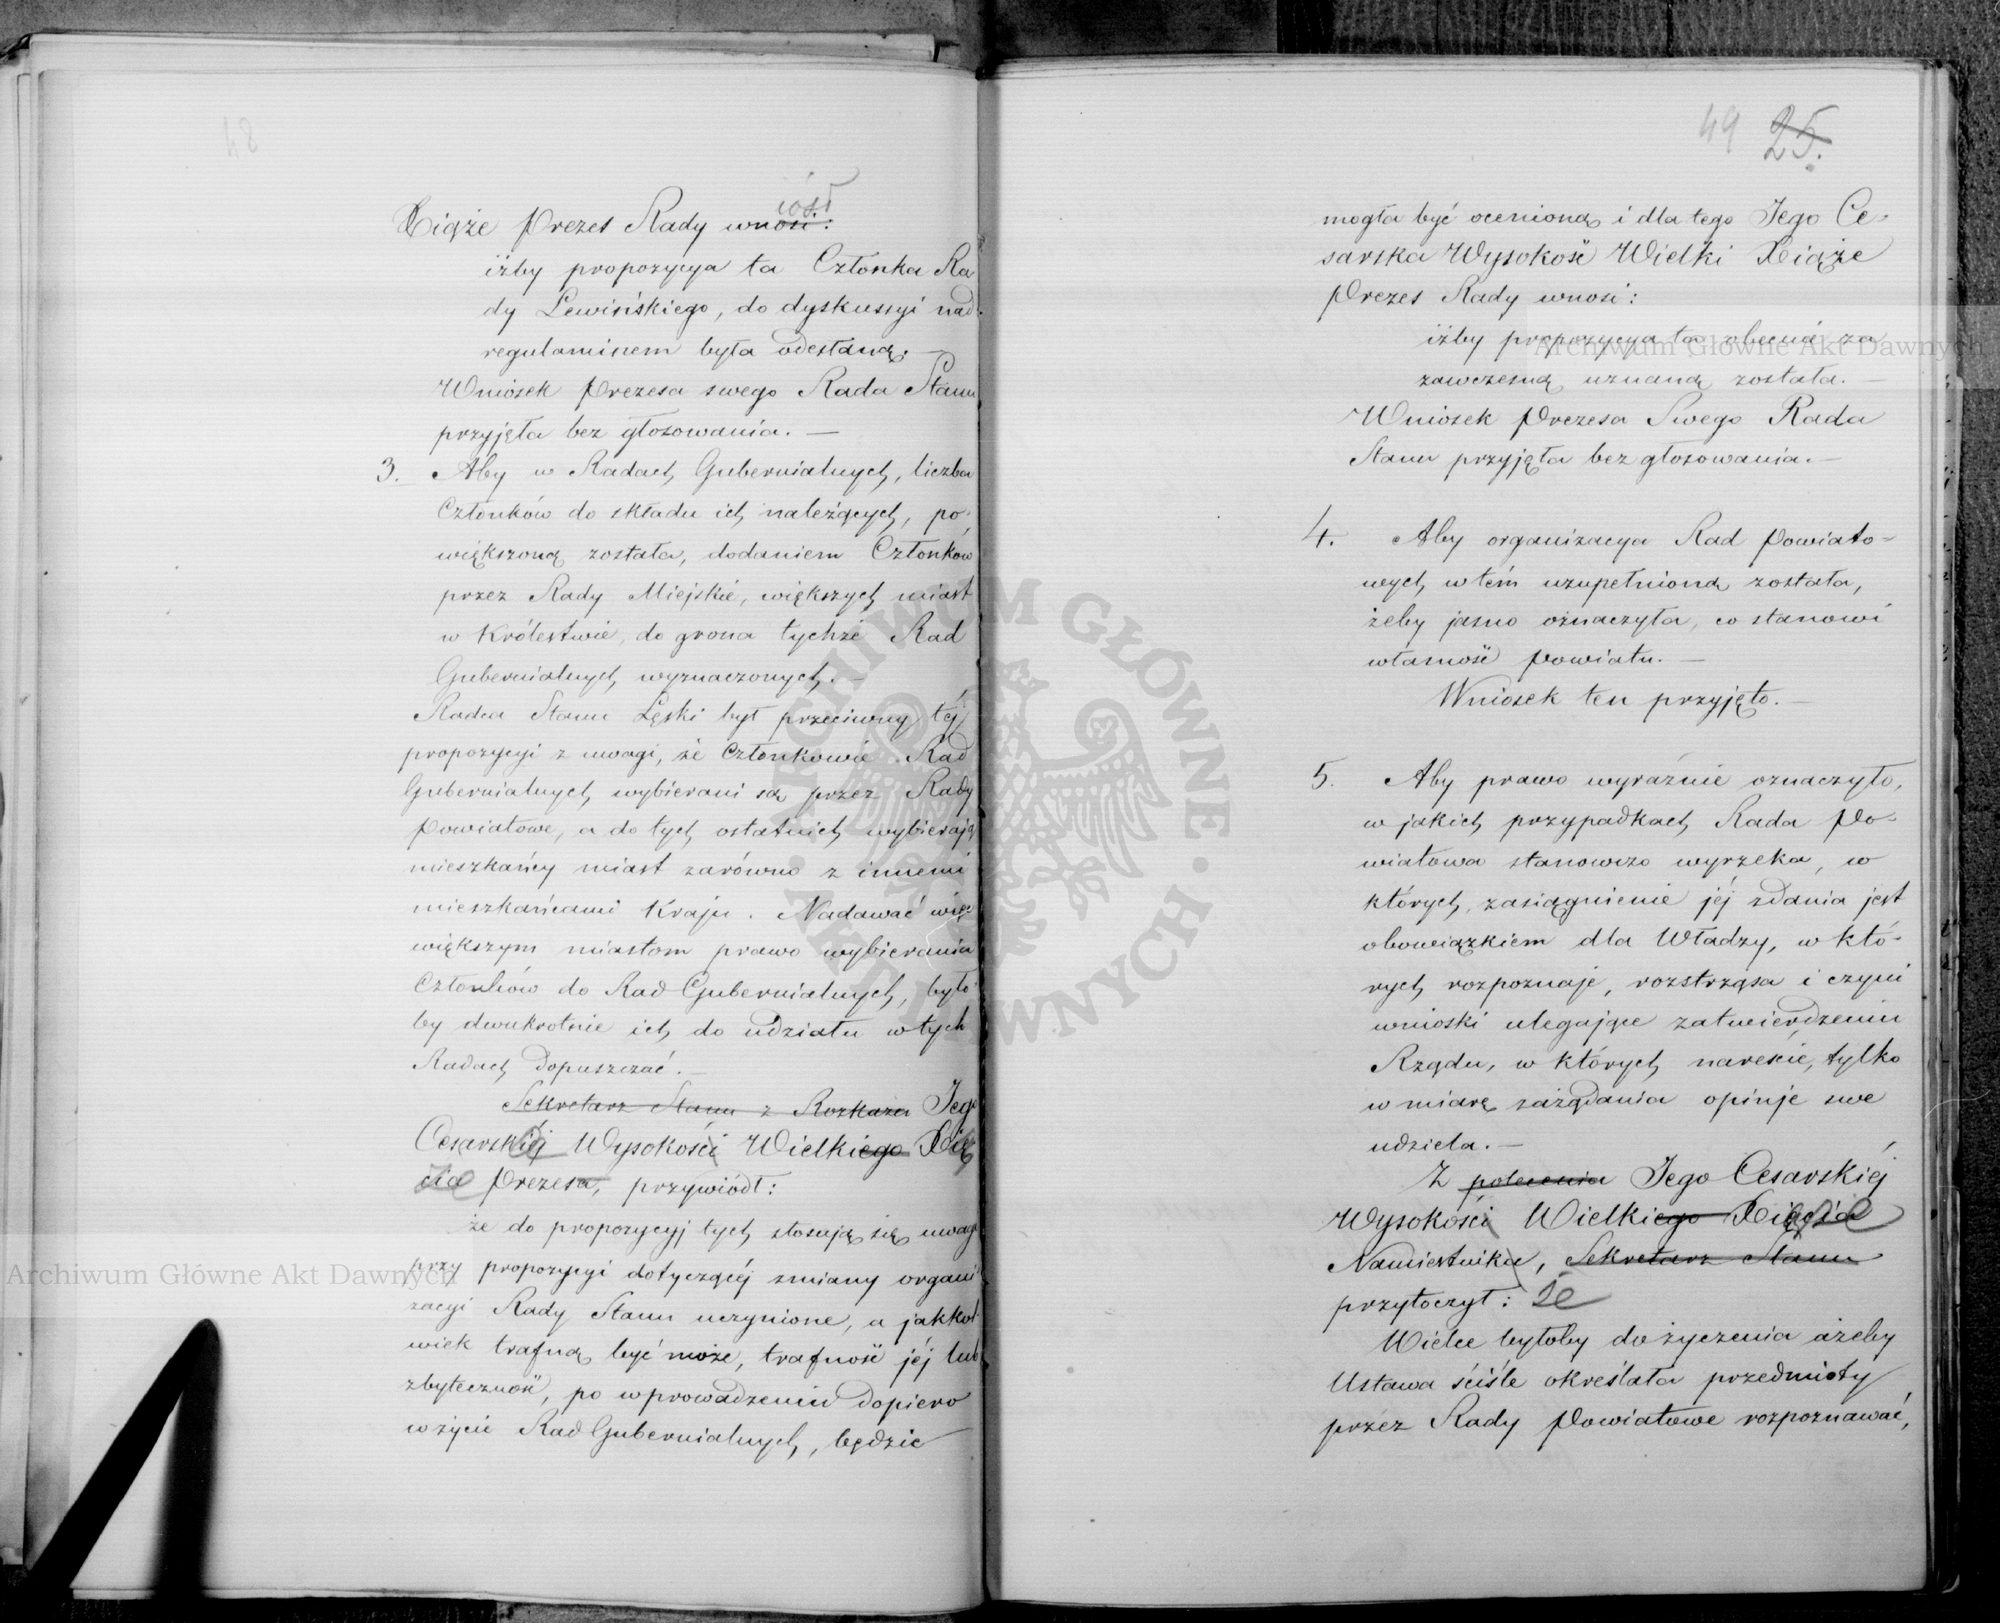 48
Xiąże Prezes Rady wnosi: iósł
iżby propozycya ta Członka Ra
dy Lewińskiego, do dyskussyi nad
regulaminem była odesłaną. —
Wniosek Prezesa swego Rada Stanu
przyjęła bez głosowania. —
3. Aby w Radach Gubernialnych, liczba
Członków do składu ich należących, po-
większoną została, dodaniem Członków
przez Rady Miejskie, większych miast
w Królestwie, do grona tychże Rad
Gubernialnych wyznaczonych. —
Radca Stanu Łęski był przeciwny téj
propozycyi z uwagi, że Członkowie Rad
Gubernialnych wybierani są przez Rady
Powiatowe, a do tych ostatnich wybierają
mieszkańcy miast zarówno z innemi
mieszkańcami Kraju. Nadawać więc
większym miastom prawo wybierania
Członków do Rad Gubernialnych, było-
by dwukrotnie ich do udziału w tych
Radach dopuszczać. —
Sekretarz Stanu z Rozkazu Jego
Cesarskiéj Wysokości Wielkiego Xię
cia Prezesa, przywiódł:
że do propozycyj tych stosują się uwagi
przy propozycyi dotyczącéj zmiany organi-
zacyi Rady Stanu uczynione, a jakkol-
wiek trafną być może, trafność jéj lub
zbyteczność, po wprowadzeniu dopiero
w życie Rad Gubernialnych, będzie
49 25.
mogła być ocenioną i dla tego Jego Ce-
sarska Wysokość Wielki Xiąże
Prezes Rady wnosi:
iżby propozycya ta obecnie za
zawczesną uznaną została. —
Wniosek Prezesa Swego Rada
Stanu przyjęła bez głosowania. —
4. Aby organizacya Rad Powiato-
wych w tém uzupełnioną została,
żeby jasno oznaczyła, co stanowi
własność Powiatu. —
Wniosek ten przyjęto. —
5. Aby prawo wyraźnie oznaczyło,
w jakich przypadkach Rada Po-
wiatowa stanowczo wyrzeka, w
których zasiągnienie jéj zdania jest
obowiązkiem dla Władzy, w któ-
rych rozpoznaje, roztrząsa i czyni
wnioski ulegające zatwierdzeniu
Rządu, w których nareście, tylko
w miarę zażądania opinje swe
udziela. —
Z polecenia Jego Cesarskiéj
Wysokości Wielkiego Xięcia
Namiestnika, Sekretarz Stanu
przytoczył: że
Wielce byłoby do życzenia ażeby
Ustawa ściśle określała przedmioty
przez Rady Powiatowe rozpoznawać,
Archiwum Główne Akt Dawnych
Archiwum Główne Akt Dawnych
ARCHIWUM GŁÓWNE AKT DAWNYCH